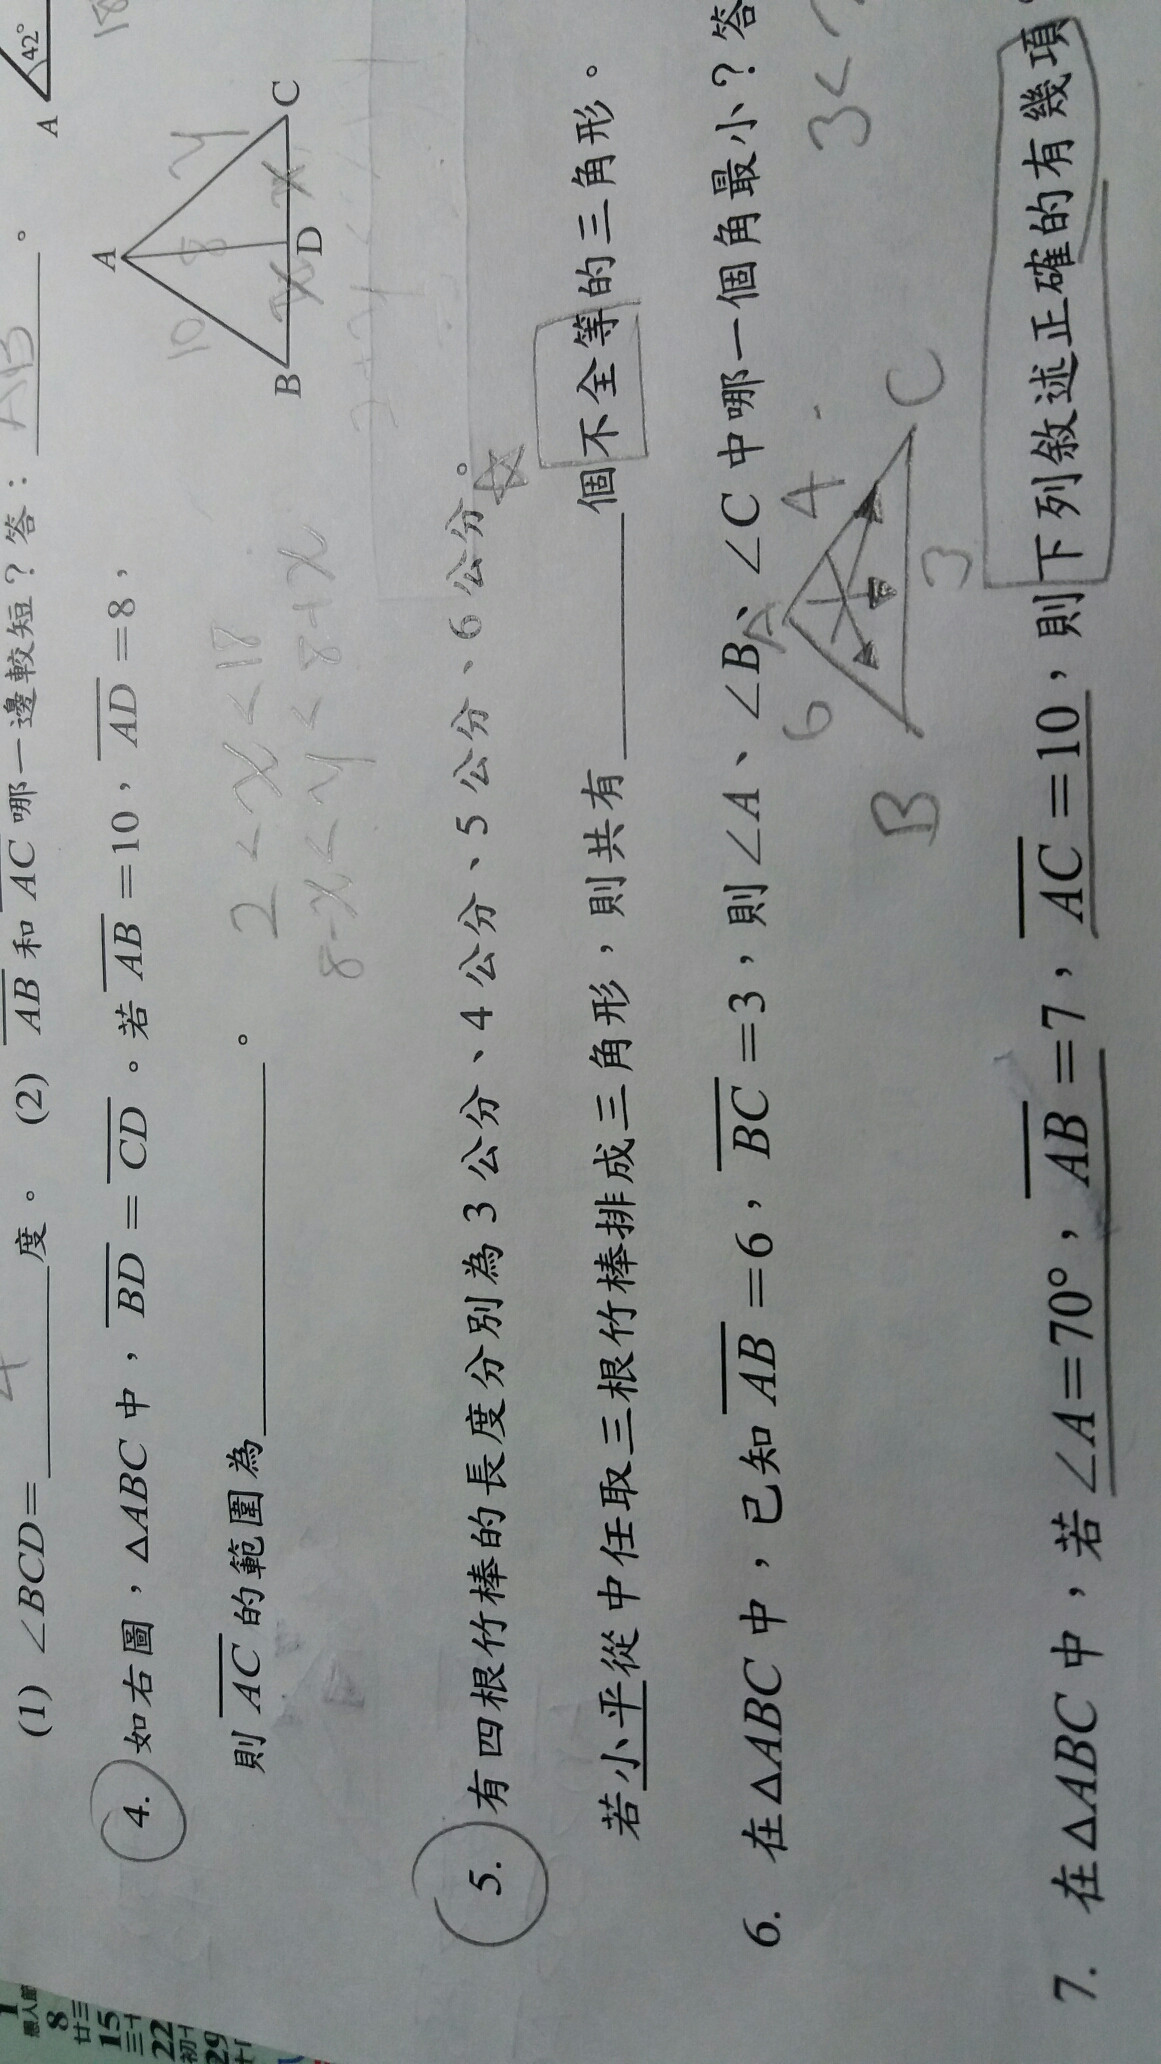 (1) ∠BCD=____度。 (2) AB 和 AC 哪一邊較短？答：AB。
A 42°
4. 如右圖，△ABC 中，BD = CD。若 AB =10，AD =8，
則 AC 的範圍為____。
A
B
D
C
10
8
y
x
x
2 < x < 18
8-x < y < 8+x
5. 有四根竹棒的長度分別為 3 公分、4 公分、5 公分、6 公分。
若小平從中任取三根竹棒排成三角形，則共有____個不全等的三角形。
6. 在△ABC 中，已知 AB =6，BC =3，則∠A、∠B、∠C 中哪一個角最小？答
A
B
C
6
4
3
3<
7. 在△ABC 中，若∠A=70°，AB =7，AC =10，則下列敘述正確的有幾項
1
愚人節
8
廿三
15
三十
22
29